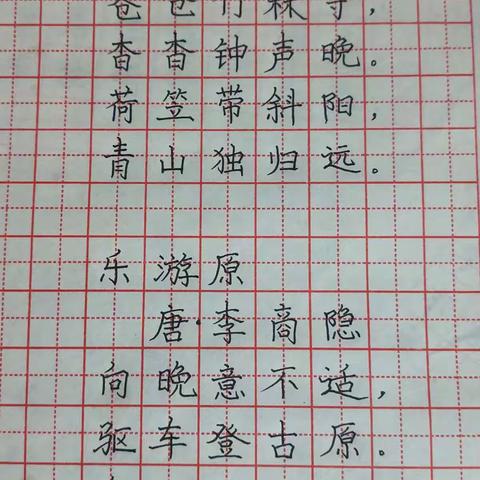 苍苍竹林寺，
杳杳钟声晚。
荷笠带斜阳，
青山独归远。
乐游原
唐·李商隐
向晚意不适，
驱车登古原。